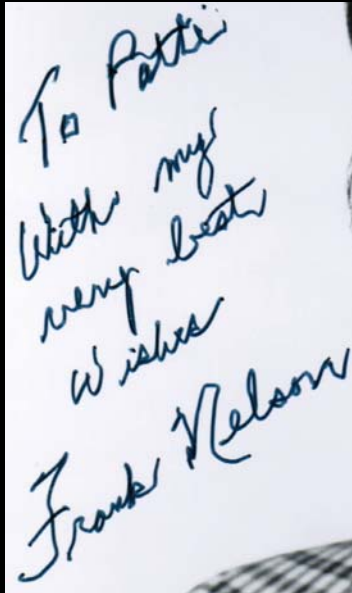 To Patti
With my
very best
Wishes
Frank Nelson